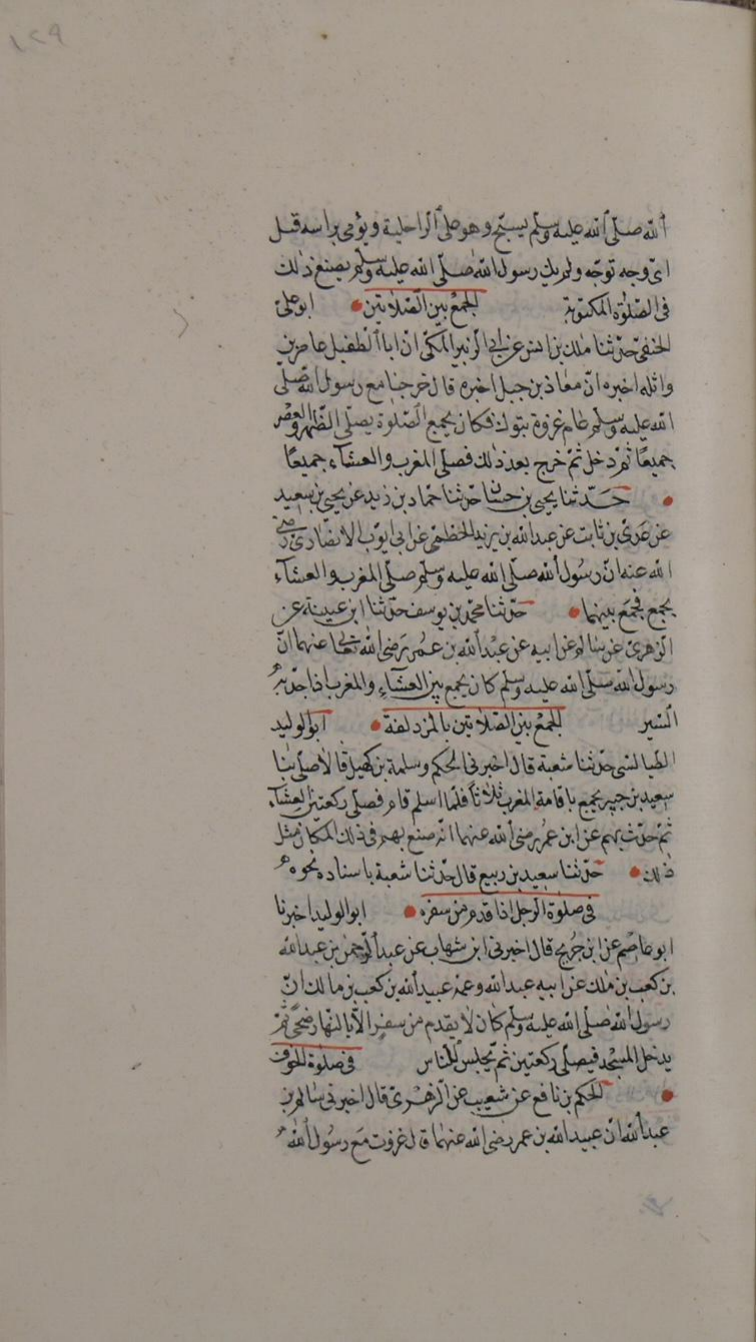 ١٢٩
الله صلى الله عليه وسلم يسبح وهو على الراحلة ويؤمى براسه قبل
اى وجه توجه ولم يك رسول الله صلى الله عليه وسلم يصنع ذلك
فى الصلوة المكتوبة الجمع بين الصلاتين ابو على
الحنفى حدثنا ملك بن انس عن ابى الزبير المكى ان ابا الطفيل عامر بن
واثله اخبره ان معاذ بن جبل اخبره قال خرجنا مع رسول الله صلى
الله عليه وسلم عام غزوة تبوك فكان يجمع الصلوة يصلى الظهر والعصر
جميعًا ثم دخل ثم خرج بعد ذلك فصلى المغرب والعشاء جميعًا
حدثنا يحيى بن حسان حدثنا حماد بن زيد عن يحيى بن سعيد
عن عدى بن ثابت عن عبد الله بن يزيد الخطمى عن ابى ايوب الانصارى رضى
الله عنه ان رسول الله صلى الله عليه وسلم صلى المغرب والعشاء
يجمع فجمع بينهما حدثنا محمد بن يوسف حدثنا ابن عيينة عن
الزهرى عن سالم عن ابيه عن عبد الله بن عمر رضى الله تعالى عنهما ان
رسول الله صلى الله عليه وسلم كان يجمع بين العشاء والمغرب اذا جد به
السير الجمع بين الصلاتين بالمزدلفة ابو الوليد
الطيالسى حدثنا شعبة قال اخبرنى الحكم وسلمة بن كهيل قالا صلى بنا
سعيد بن جبير يجمع باقامة المغرب ثلاثا فلما سلم قام فصلى ركعتين العشاء
ثم حدث بهم عن ابن عمر رضى الله عنهما انه صنع بهم فى ذلك المكان مثل
ذلك حدثنا سعيد بن ربيع قال حدثنا شعبة باسناده نحوه
فى صلوة الرجل اذا قدم من سفره ابو الوليد اخبرنا
ابو عاصم عن ابن جريج قال اخبرنى ابن شهاب عن عبد الرحمن بن عبد الله
بن كعب بن ملك عن ابيه عبد الله وعمه عبيد الله بن كعب بن مالك ان
رسول الله صلى الله عليه وسلم كان لا يقدم من سفر الا بالنهار ضحى ثم
يدخل المسجد فيصلى ركعتين ثم يجلس للناس فى صلوة الخوف
الحكم بن نافع عن شعيب عن الزهرى قال اخبرنى سالم بن
عبد الله ان عبيد الله بن عمر رضى الله عنهما قال غزوت مع رسول الله